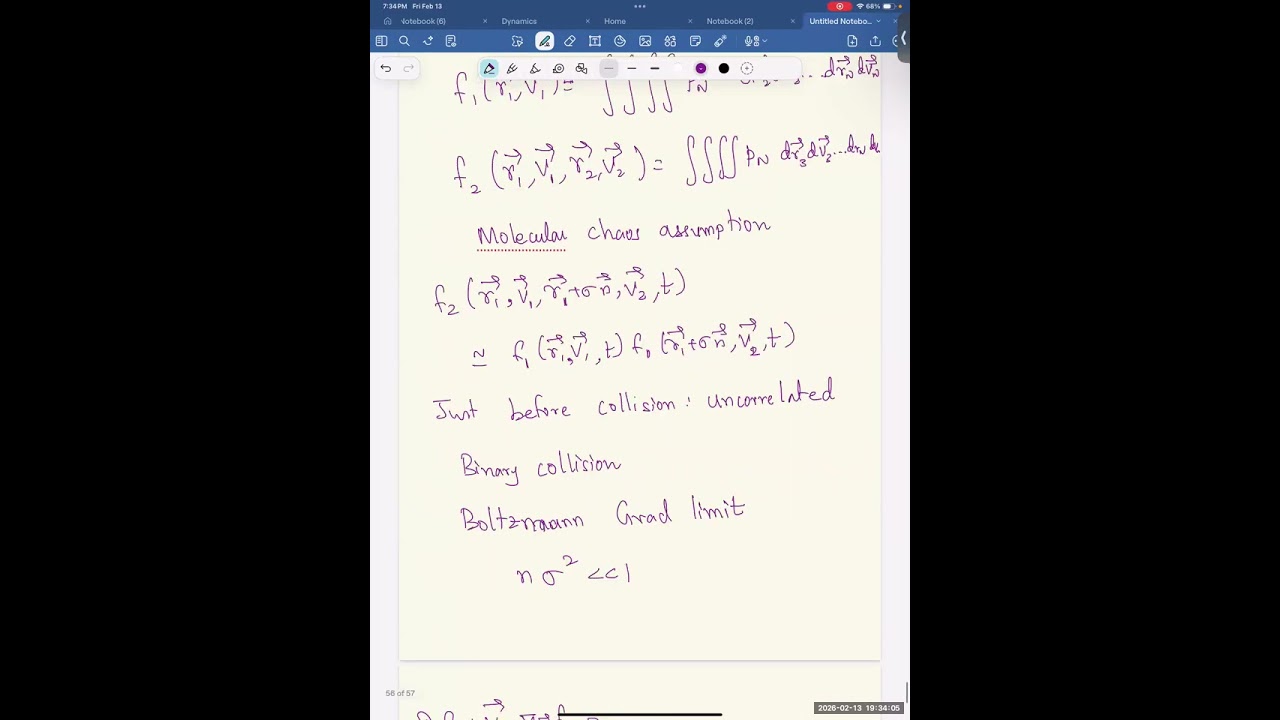 7:34 PM Fri Feb 13
68%
Notebook (6) Dynamics Home Notebook (2) Untitled Notebo...
f₁(r⃗₁,v⃗₁)= ∫∫∫∫ PN ...dr⃗N dv⃗N
f₂ (r⃗₁,v⃗₁,r⃗₂,v⃗₂) = ∫∫∫∫ PN dr⃗₃dv⃗₃...drN dv
Molecular chaos assumption
f₂ (r⃗₁,v⃗₁,r⃗₁+σn⃗,v⃗₂,t)
≃ f₁ (r⃗₁,v⃗₁,t) f₁ (r⃗₁+σn⃗,v⃗₂,t)
Just before collision: uncorrelated
Binary collision
Boltzmann Grad limit
nσ² <<1
56 of 57
2026-02-13 19:34:05